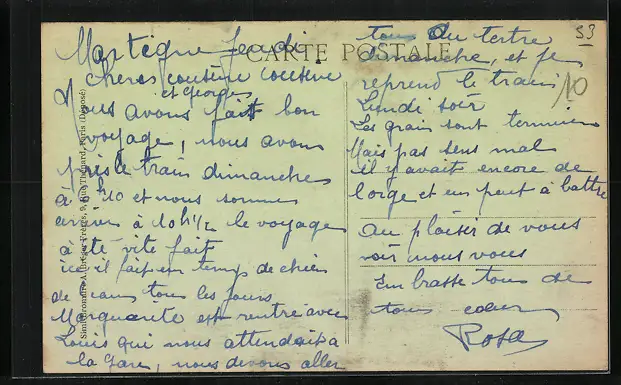 CARTE POSTALE
53
10
Martigné Jeudi
Cheres cousine cousine
et Georges
Nous avons fait bon
voyage, nous avons
pris le train dimanche
à et nous sommes
à 10 h 1/2 le voyage
à été vite fait
ici il fait un temps de chien
de tous les jours
est rentré avec
Louis qui nous attendait à
la Gare, nous devons aller
tous Du tertre
dimanche, et je
reprend le train
Lundi soir
Les grain sont terminer
Mais pas sens mal
il y avait encore de
l'orge et un peut à battre
Au plaisir de vous
voir nous vous
Embrasse tous de
tous cœur
Rosa
Frères, 9, Rue Thénard, Paris (Déposé)